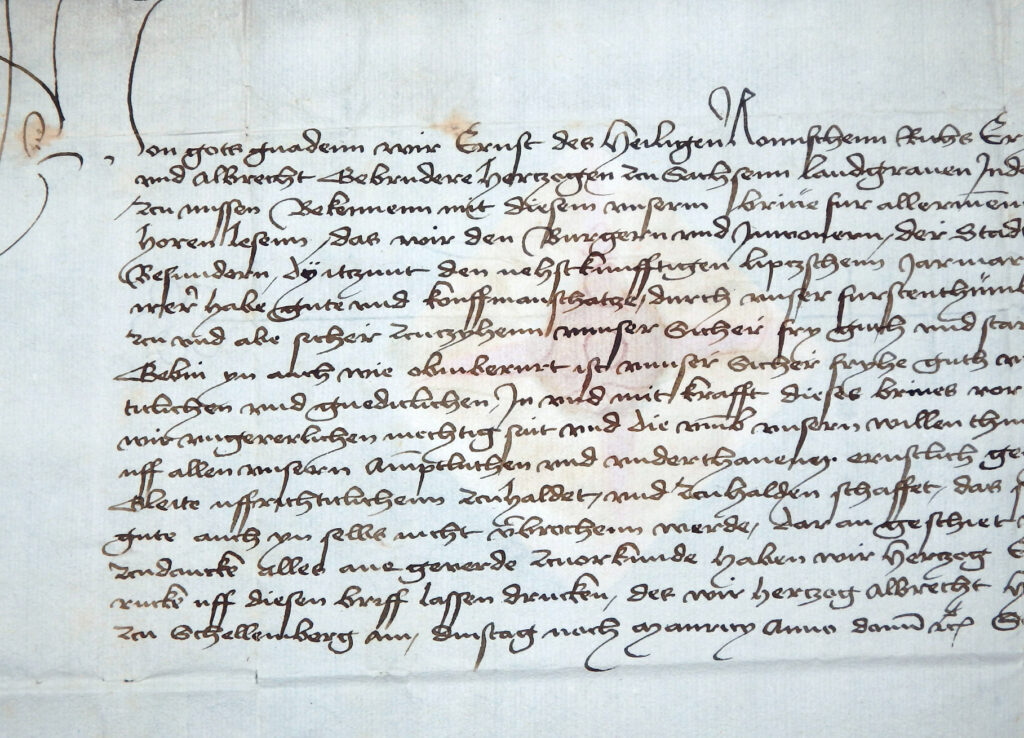 Von gots gnadenn wir Ernst des Heiligen Romischenn Richs Er
vnd Albrecht Gebrudere Hertzogen zcu Sachsenn Landgrauen Inde
zcu missen Bekennenn mit diesem vnserm briue fur allermen
horen lesenn, das wir den Burgern vnd Inwonern, der Stad
Besundern, dy itzunt den nehstkunfftigen liptzschenn Jarmar
wer habe gute vnd kouffmanschatze, durch vnser furstenthum
zcu vnd abe secher zcuczyhenn vnnser Sicher fry gleith vnd star
Gebin yn auch wie obinberurt ist vnnser Sicher fryhe
ticlichen vnd gnediclichen, In vnd mit krafft dieses briues vor
wir vngeuerlichen mechtig sint vnd die vmb vnsern willen thun
uff allen vnsern Amptluthen vnd vnderthanenn ernstlich
Gleite uffrichticlichenn zcuhaldet, vnd zcuhalden schaffet, das
gute auch yn selbs nicht vbrochenn werde, dar an geschiet
zcudancke alles ane geuerde zcuorkunde haben wir Hertzog
rucke uff diesen briff lassen drucken, des wir Hertzog Albrecht
zcu Schellemberg am, dinstag noch Mauricy Anno domi